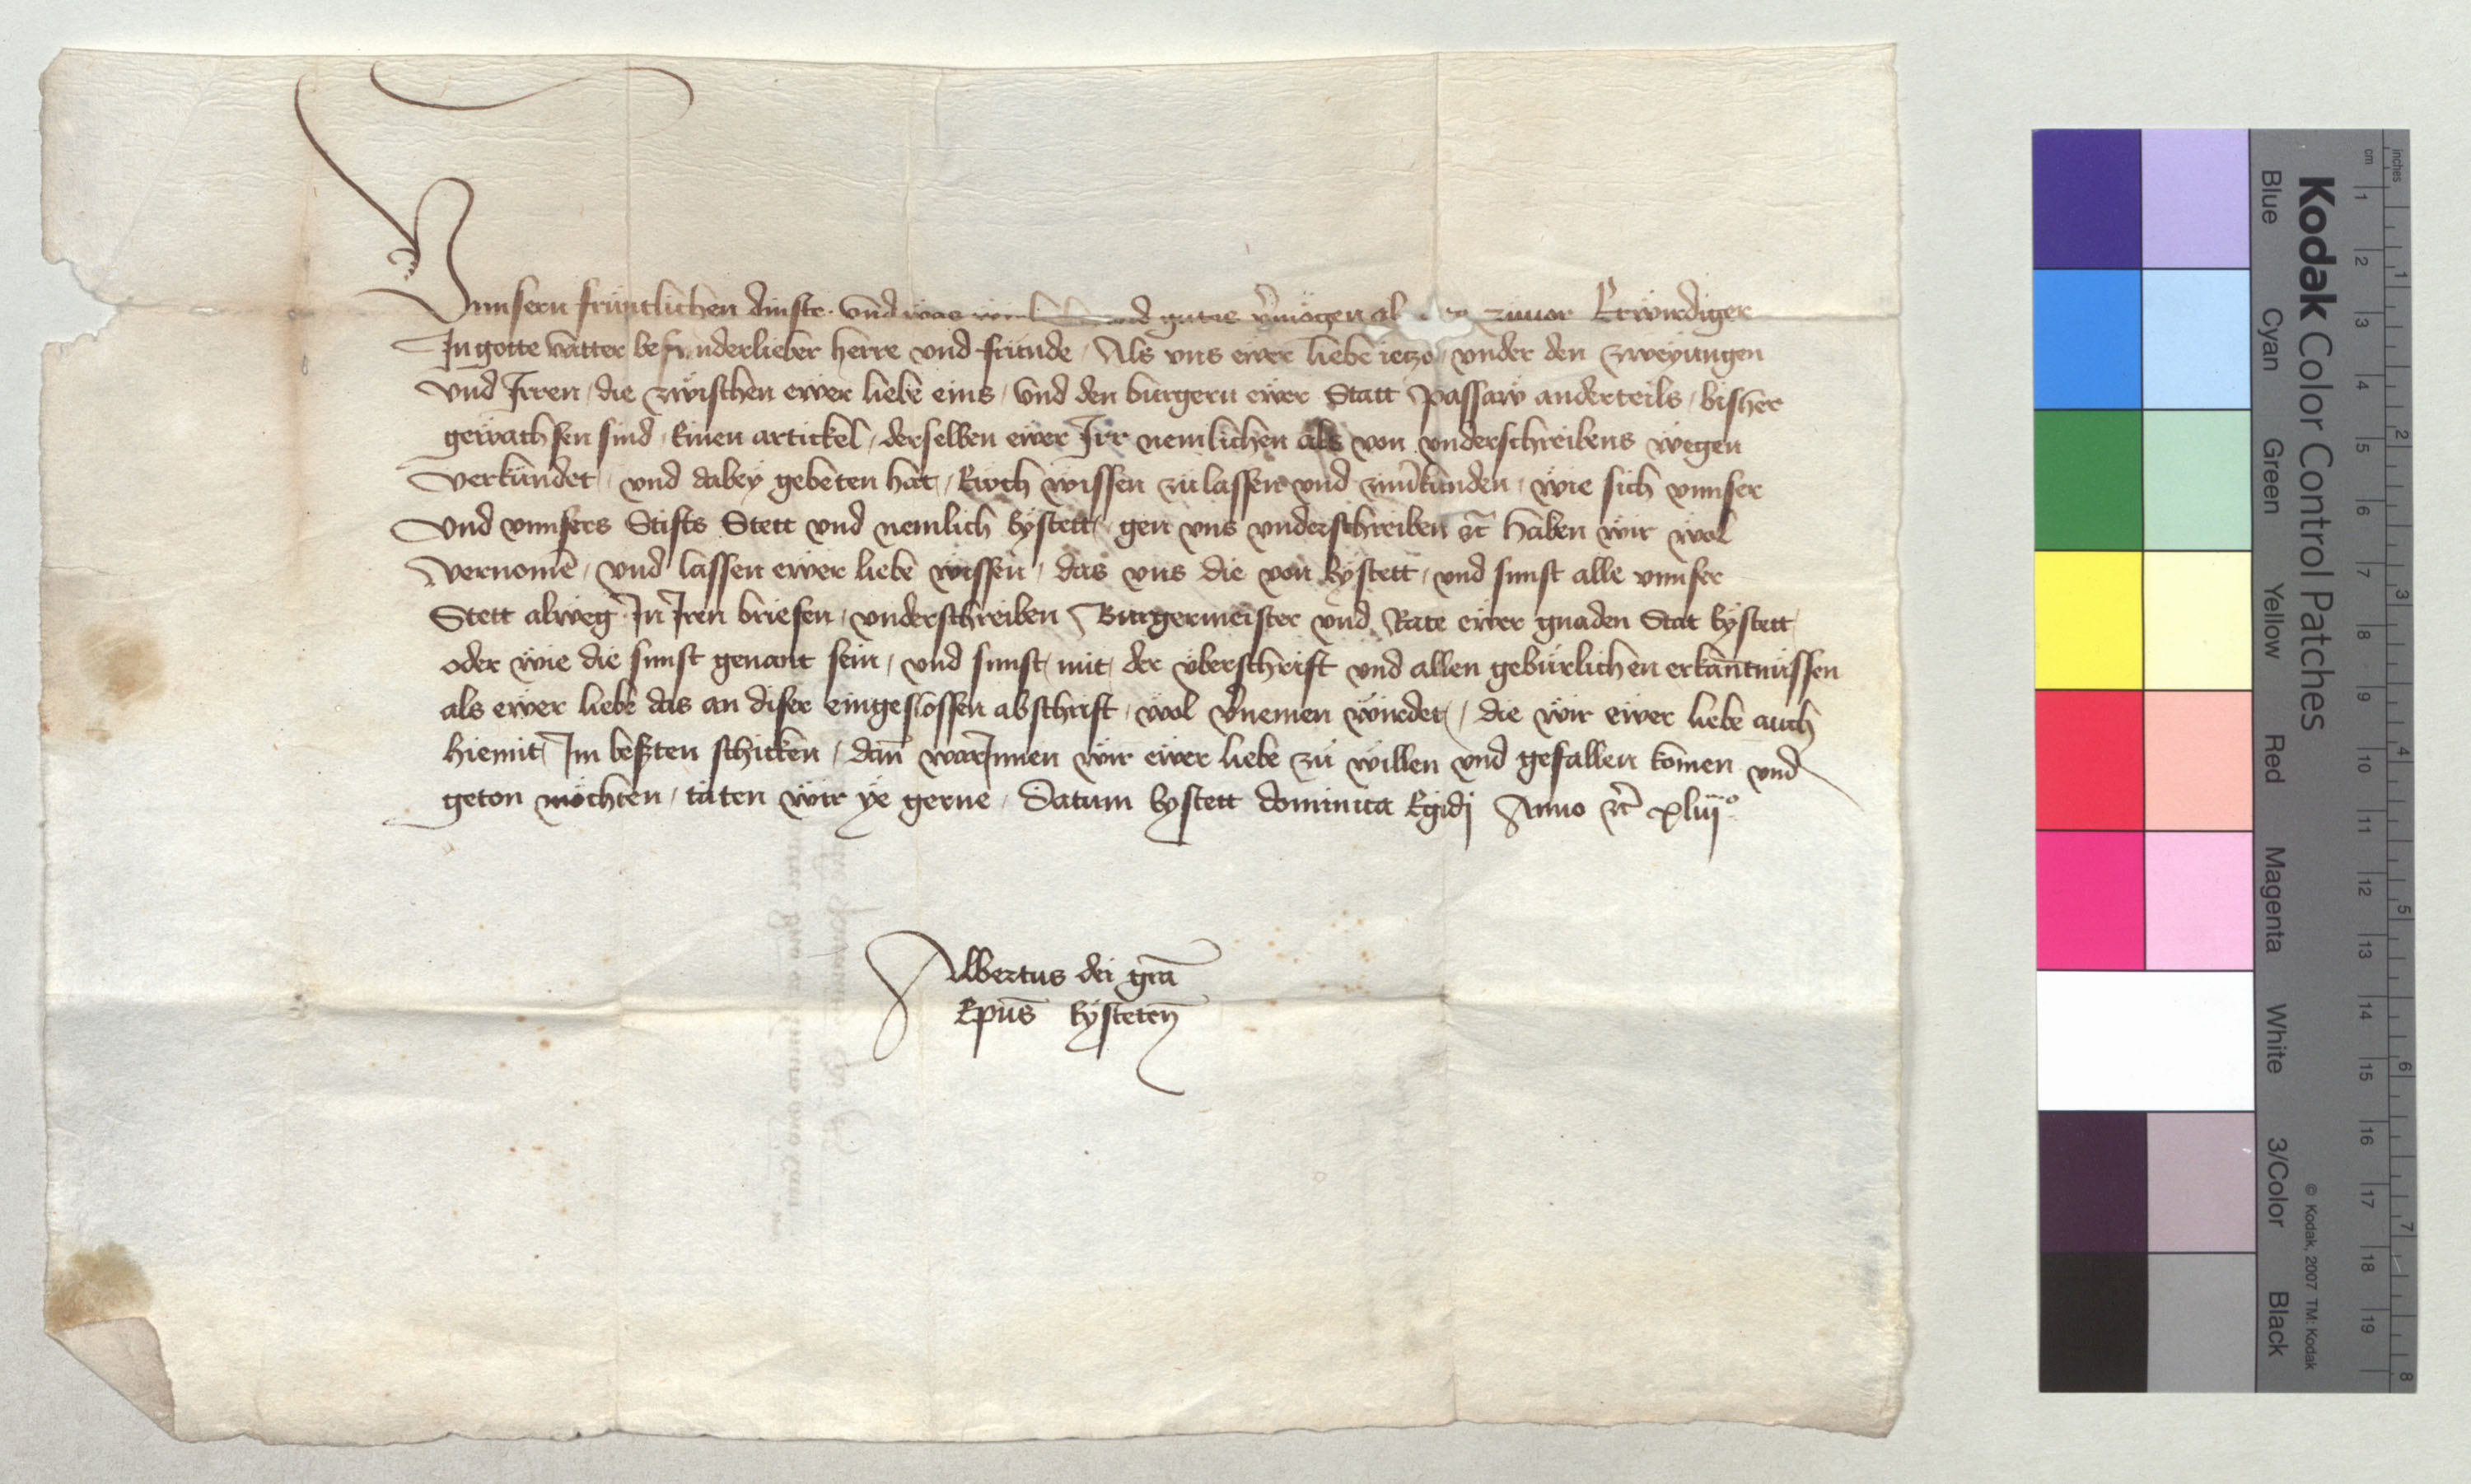 Unnsern früntlichen dinste und was wir gutes v̄mögen zuuor Erwirdiger
In gotte vatter besunderlieber herre und fründe / Als vns ewer liebe ietzo / vnder den zweyungen
vnd Irren / die zwischen ewer liebe eins / vnd den burgern ewer Statt Passaw anderteils / bisher
gewachsen sind / Einen artickel / derselben ewer Irr nemlichen als von vnderschreibens wegen
verkündet / vnd dabey gebeten hat / Ewch wissen zu lassen vnd zuu̅künden / wie sich vnnser
Vnd vnnsers Stifts Stett vnd nemlich Eystett / gen vns vnderschreiben ꝛc̄ haben wir wol
vernomē / vnd lassen ewer liebe wissen / das vns die von Eystett / vnd sunst alle vnnser
Stett alweg In Iren briefen / vnderschreiben Burgermeister vnd Rate ewer gnaden Stat Eystett
oder wie die sunst genant sein / vnd sunst mit der überschrift vnd allen gebürlichen erkantnüssen
als ewer liebe das an diser eingeslossen abschrift / wol v̄nemen würdet / die wir ewer liebe auch
hiemit Im beszten schicken / dan̄ warInnen wir ewer liebe zu willen vnd gefallen komen vnd
geton möchten / täten wir ye gerne / Datum Eystett dominica Egidij Anno ꝛc̄ xliijº
Albertus dei gr̄a
Ep̄us Eysteten̄
Kodak Color Control Patches
Blue Cyan Green Yellow Red Magenta White 3/Color Black
© Kodak, 2007 TM: Kodak
cm 1 2 3 4 5 6 7 8 9 10 11 12 13 14 15 16 17 18 19
inches 1 2 3 4 5 6 7 8